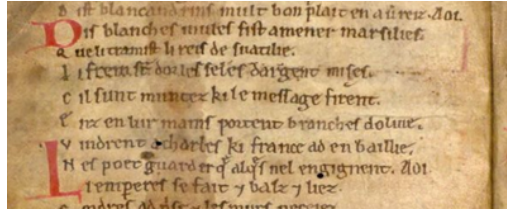 D ist blancandrins mult bon plait en aureiz. Aoi.
Dis blanches mules fist amener marsilies.
Q ue li tramist li reis de suatilie.
L i frein sunt dor les seles dargent mises.
C il sunt muntez ki le message firent.
E nz en lur mains portent branches doliue.
V indrent a charles ki france ad en baillie.
N es poet guarder q̃ alq̃s nel engignent. AOI.
Li emperes se fait ⁊ balz ⁊ liez.